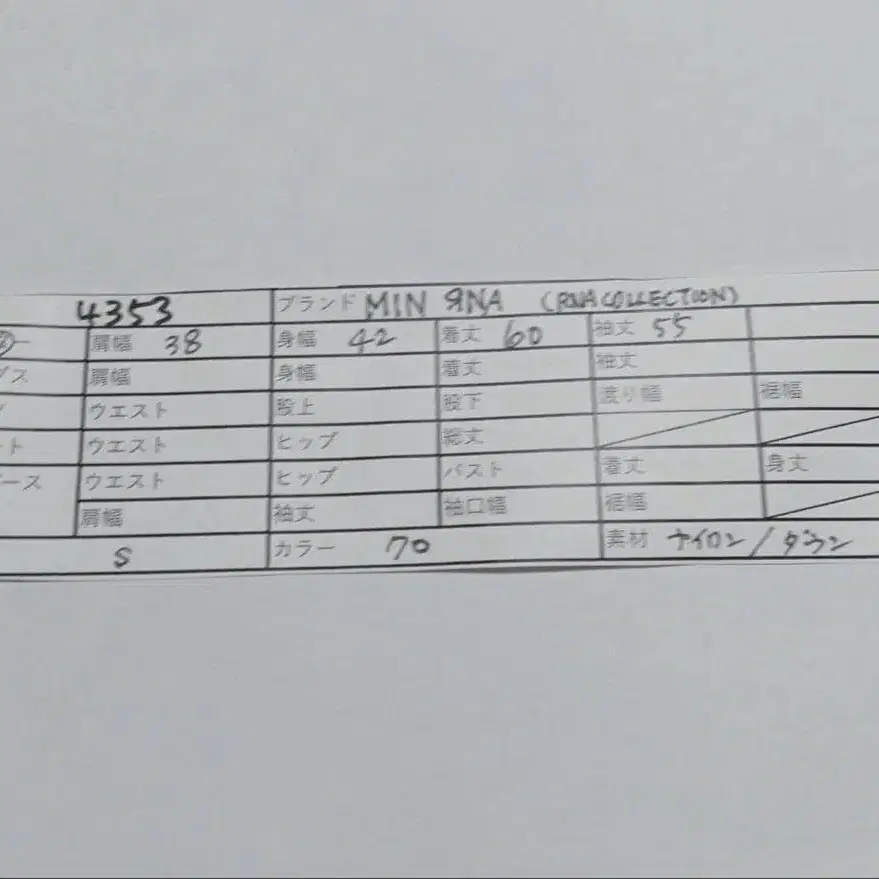 4353 ブランド MIN ЯNA (RNA COLLECTION)
ー 肩幅 38 身幅 42 着丈 60 袖丈 55
プス 肩幅 身幅 着丈 袖丈
ウエスト 股上 股下 渡り幅 裾幅
ート ウエスト ヒップ 総丈
ース ウエスト ヒップ バスト 着丈 身丈
肩幅 袖丈 袖口幅 裾幅
S カラー 70 素材 ナイロン/ダウン